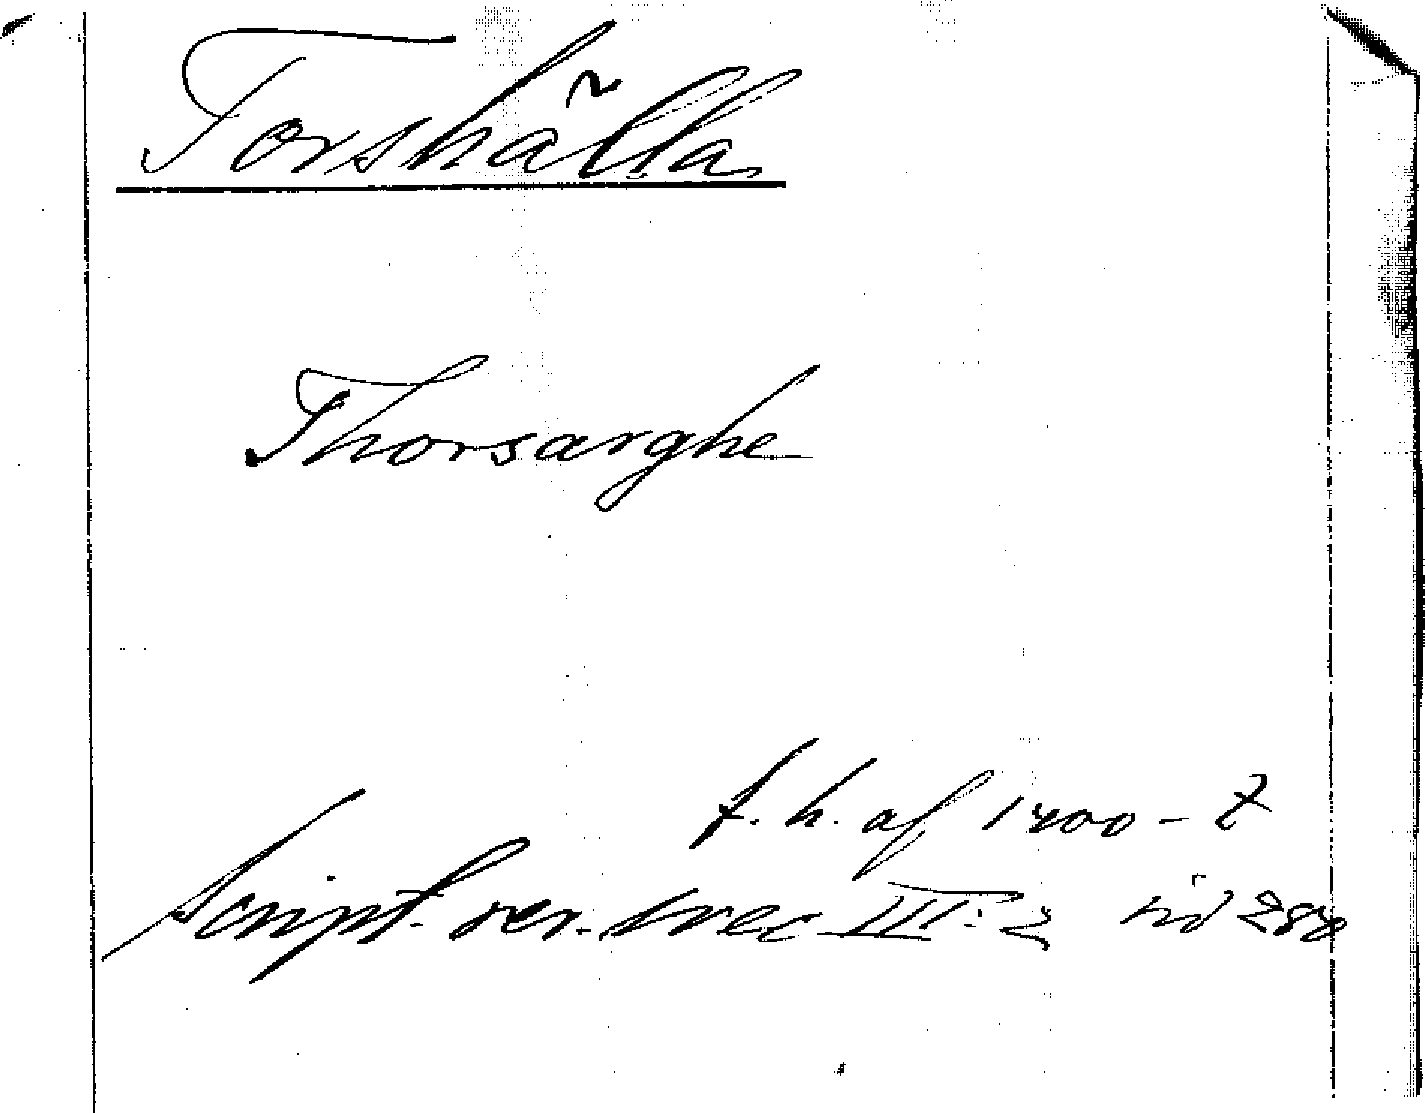 Torshälla
Thorsarghe
f. h. af 1400 - t
Script. rer. svec III: 2 sid 288